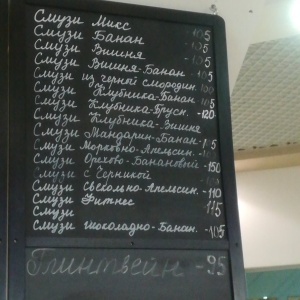 Смузи Микс 105
Смузи Банан 105
Смузи Вишня 105
Смузи Вишня-Банан 105
Смузи из черной смородин. 100
Смузи Клубника-Банан 105
Смузи Клубника-Брусн. -120
Смузи Клубника-Вишня
Смузи Мандарин-Банан
Смузи Морковно-Апельсин.
Смузи Орехово-Банановый -150
Смузи с Черникой
Смузи Свекольно-Апельсин. -110
Смузи Фитнес
Смузи
Смузи шоколадно-Банан. -105
Глинтвейн -95